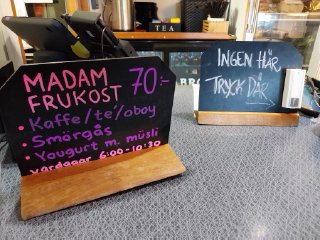 TEA
MADAM 70:-
FRUKOST
• Kaffe/te/oboy
• Smörgås
• Yougurt m. müsli
vardagar 6:00-10:30
INGEN HÄR
TRYCK DÄR